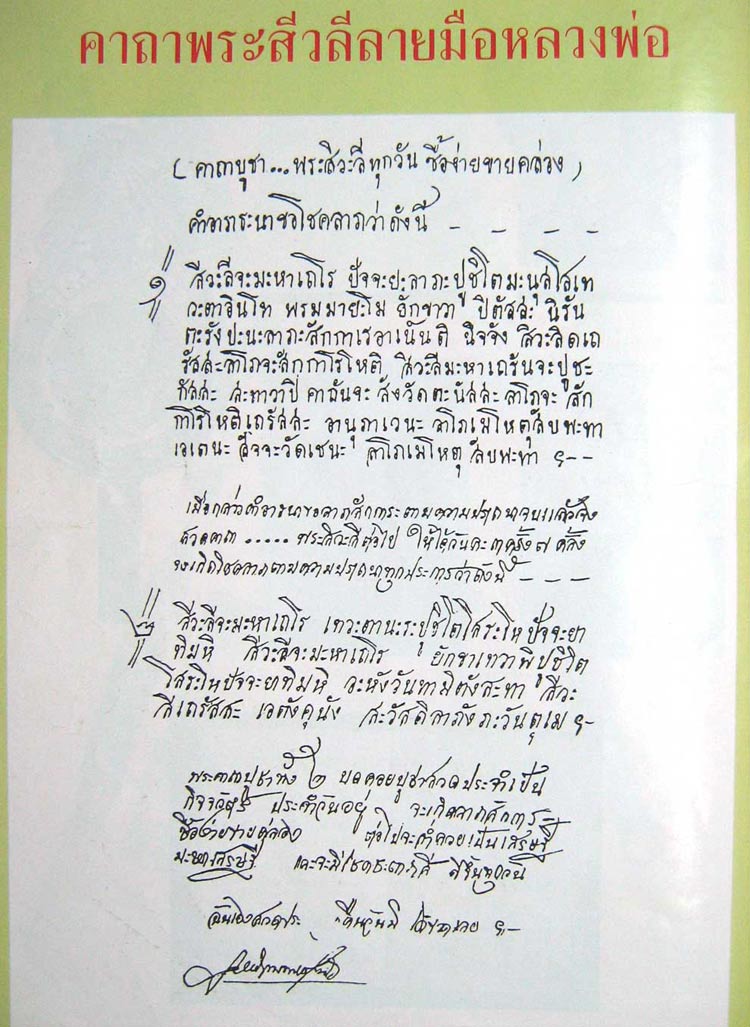 คาถาพระสีวลีลายมือหลวงพ่อ
( คาถาบูชา...พระสีวะลีทุกวัน ซื้อง่ายขายคล่อง )
คำอาราธนาขอโชคลาภว่าดังนี้ - - - -
๑ สีวะลีจะมะหาเถโร ปัจจะยะลาภะปูชิโตมะนุสโสเท
วะตาอินโท พรมมายะโม ยักขาวา ปิตัสสะ นิรัน
ตะรังปะนะลาภะสักกาเรอาเนันติ นิจจัง สีวะลิดเถ
รัสสะลาโภจะสักกาโรโหติ สีวะลีมะหาเถรันจะปูชะ
กัสสะ สะทาวาปิ คาถันจะ สังวัดตะนัสสะ ลาโภจะ สัก
กาโรโหติเถรัสสะ อานุภาเวนะ ลาโภเมโหตุสับพะทา
เอเตนะ สัจจะวัดเชนะ ลาโภเมโหตุ สับพะทา ๚--
เมื่อกล่าวคำอาราธนาขอลาภสักการะตามความปรารถนาจบแล้วจึง
สวดคาถา ..... พระสีวะลีต่อไป ให้ได้วันละ ๓ ครั้ง ๗ ครั้ง
จะเกิดโชคลาภตามความปรารถนาทุกประการว่าดังนี้ - - - -
๒ สีวะลีจะมะหาเถโร เทวะตานะระปูชิโตโสระโหปัจจะยา
ทิมหิ สีวะลีจะมะหาเถโร ยักขาเทวาพิปูชิโต
โสระโหปัจจะยาทิมหิ อะหังวันทามิตังสะทา สีวะ
ลีเถรัสสะ เอตังคุนัง สะวัสดิลาภังภะวันตุเม ๚-
พระคาถาบูชาทั้ง ๒ บทคอยบูชาสวดประจำเป็น
กิจวัตร ประจำวันอยู่ จะเกิดลาภสักการะ
ซื้อง่ายขายคล่อง ต่อไปจะร่ำรวยเป็นเศรษฐี
มะหาเศรษฐี และจะมีโชคชะตาดี ดีขึ้นทุกวัน